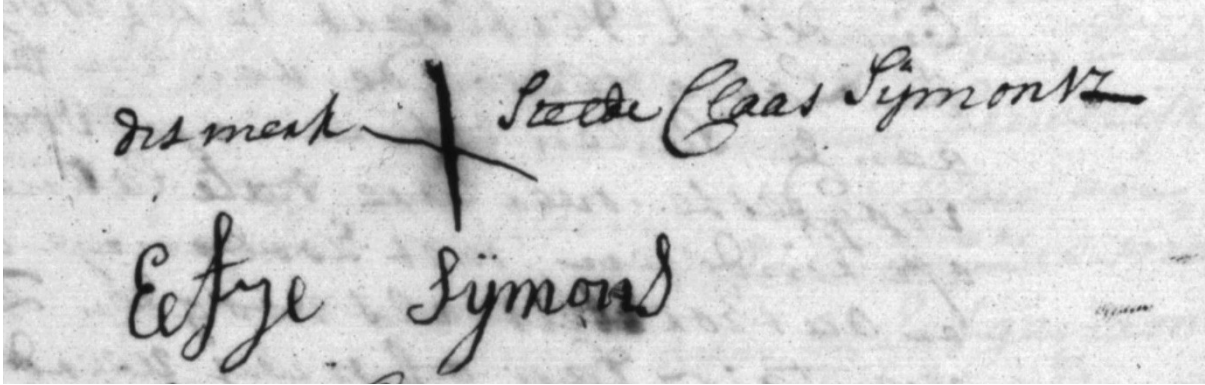 dit merk Stelde Claas Sijmontz
Eefije Sÿmons